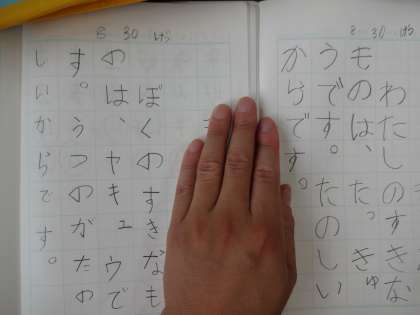 8 30
わたしのすきな
ものは、たっきゅ
うです。たのしい
からです。
8 30
ぼくのすきなも
のは、ヤキュウで
す。うつのがたの
しいからです。